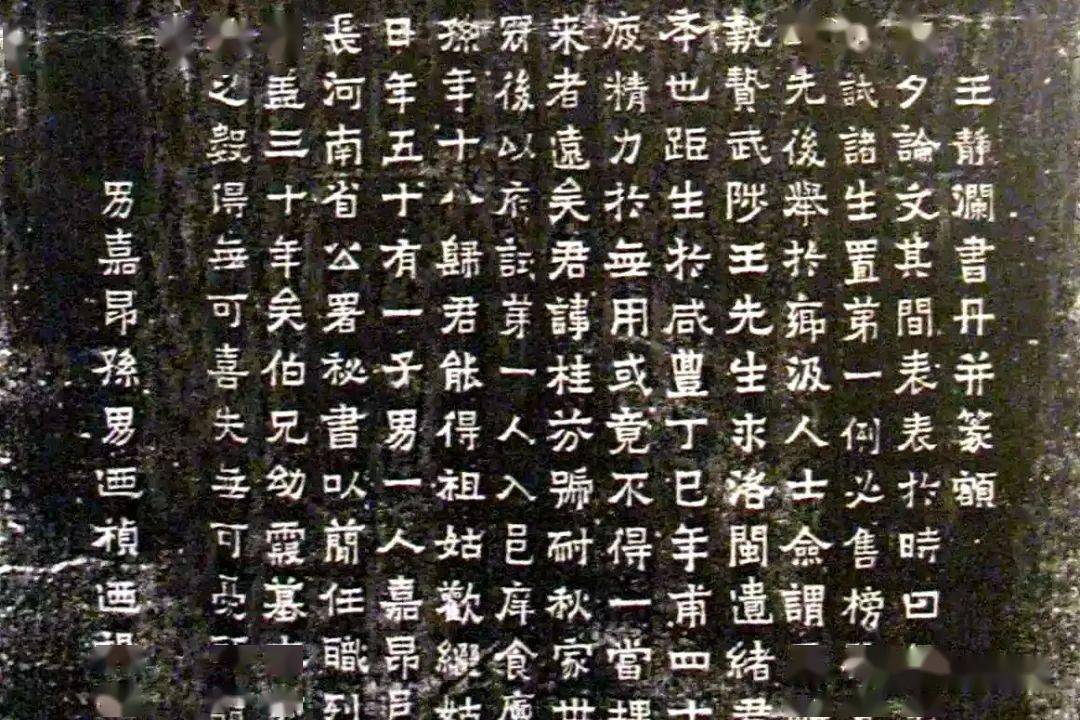 王静瀾書丹并篆額
夕論文其間表表於時曰
試諸生置第一例必售榜
先後舉於鄉汲人士僉謂
執贄武陟王先生求洛閩遺緒君
卒也距生於咸豐丁巳年甫四十
疲精力於無用或竟不得一當
来者遠矣君諱桂芬號耐秋家世
後以府試第一人入邑庠食廩
孫年十八歸君能得祖姑歡繼姑
日年五十有一子男一人嘉昂邑
長河南省公署秘書以簡任職到
蓋三十年矣伯兄幼霞墓
之毅得無可喜失無可憂
男嘉昂孫男迺楨迺